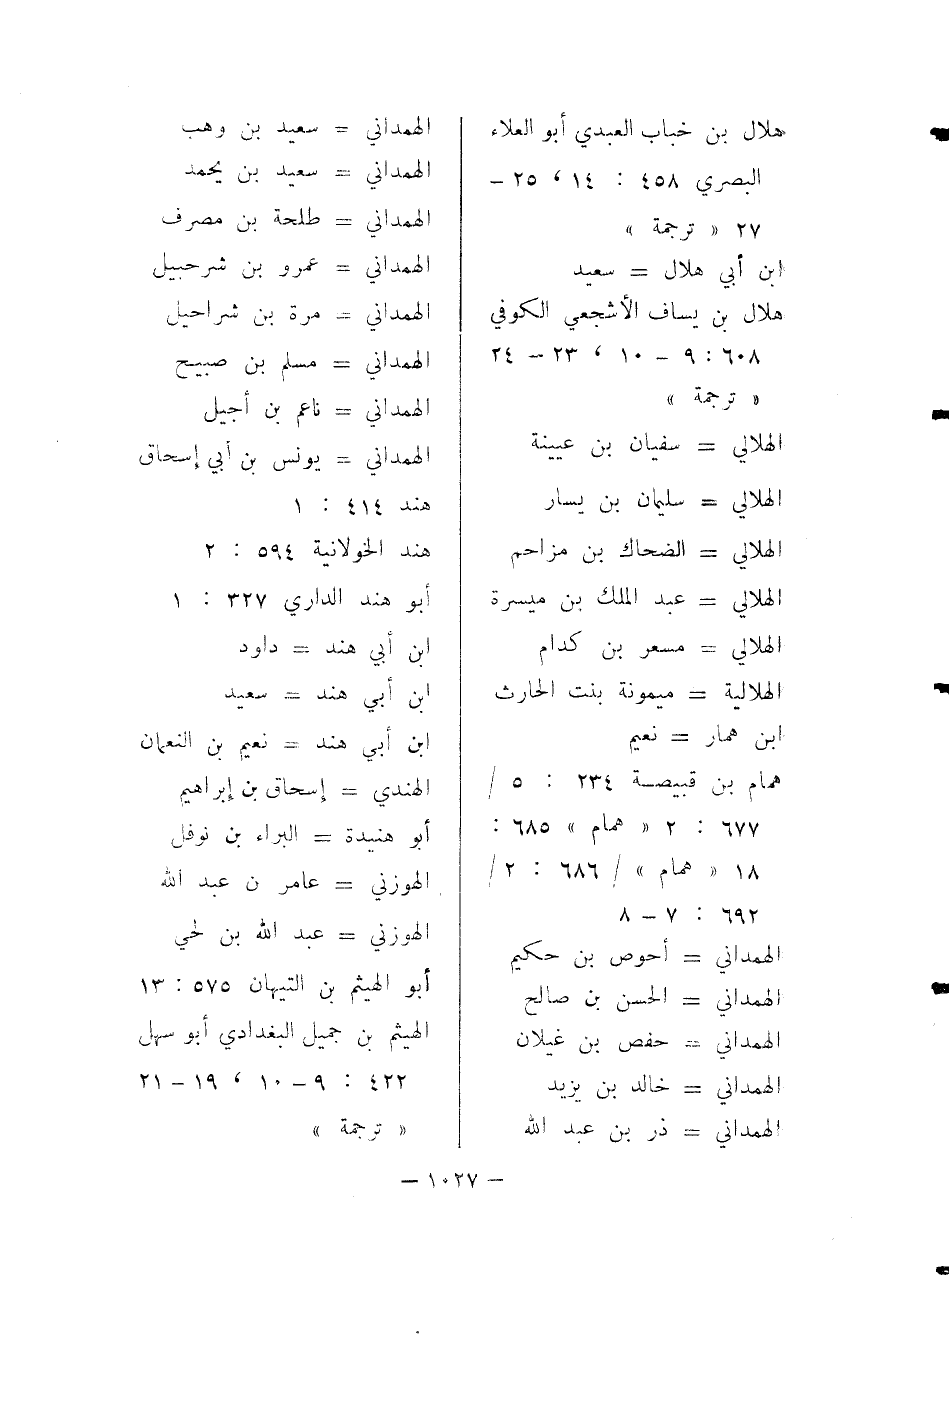 هلال بن خباب العبدي أبو العلاء
البصري ٤٥٨ : ١٤ ، ٢٥ -
٢٧ « ترجمة »
ابن أبي هلال = سعيد
هلال بن يساف الأشجعي الكوفي
٦٠٨ : ٩ - ١٠ ، ٢٣ - ٢٤
« ترجمة »
الهلالي = سفيان بن عيينة
الهلالي = سليمان بن يسار
الهلالي = الضحاك بن مزاحم
الهلالي = عبد الملك بن ميسرة
الهلالي = مسعر بن كدام
الهلالية = ميمونة بنت الحارث
ابن همار = نعيم
همام بن قبيصة ٢٣٤ : ٥ /
٦٧٧ : ٢ « همام » ٦٨٥ :
١٨ « همام » / ٦٨٦ : ٢ /
٦٩٢ : ٧ - ٨
الهمداني = أحوص بن حكيم
الهمداني = الحسن بن صالح
الهمداني = حفص بن غيلان
الهمداني = خالد بن يزيد
الهمداني = ذر بن عبد الله
الهمداني = سعيد بن وهب
الهمداني = سعيد بن يحمد
الهمداني = طلحة بن مصرف
الهمداني = عمرو بن شرحبيل
الهمداني = مرة بن شراحيل
الهمداني = مسلم بن صبيح
الهمداني = ناعم بن أجيل
الهمداني = يونس بن أبي إسحاق
هند ٤١٤ : ١
هند الخولانية ٥٩٤ : ٢
أبو هند الداري ٣٢٧ : ١
ابن أبي هند = داود
ابن أبي هند = سعيد
ابن أبي هند = نعيم بن النعمان
الهندي = إسحاق بن إبراهيم
أبو هنيدة = البراء بن نوفل
الهوزني = عامر ن عبد الله
الهوزني = عبد الله بن لحي
أبو الهيثم بن التيهان ٥٧٥ : ١٣
الهيثم بن جميل البغدادي أبو سهل
٤٢٢ : ٩ - ١٠ ، ١٩ - ٢١
« ترجمة »
- ١٠٢٧ -